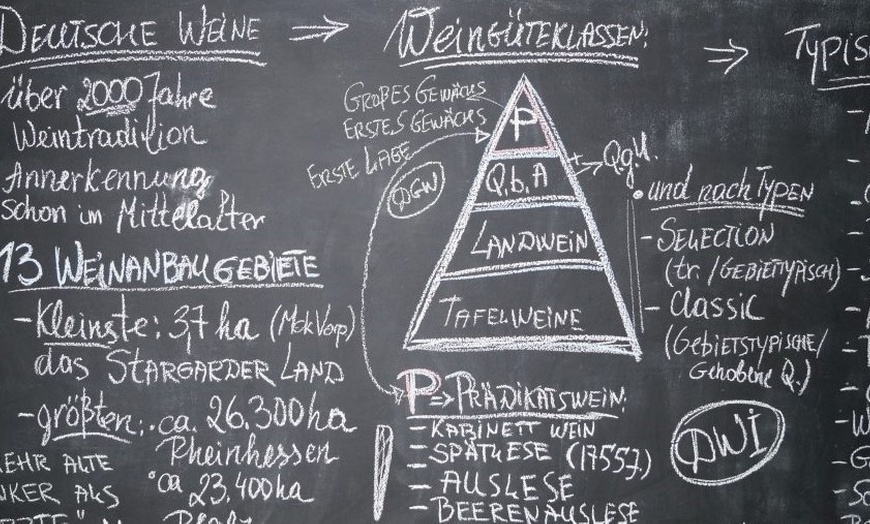 DEUTSCHE WEINE ⇒
über 2000 Jahre
Weintradition
Annerkennung
schon im Mittelalter
13 WEINANBAUGEBIETE
- Kleinste: 3,7 ha (MckVorp)
das STARGARDER LAND
- größten: ca. 26.300 ha
Rheinhessen
EHR ALTE
KER ALS
ca 23.400 ha
WeinGÜTEKLASSEN: ⇒
GROßES GEWÄCHS
ERSTES GEWÄCHS
ERSTE LAGE
DGW
P
Q.b.A
+ → Q.g.U.
LANDWEIN
TAFELWEINE
und nach TYPEN
- SELECTION
(tr./GEBIETTYPISCH)
- Classic
(GebietstypischE/
Gehobene Q.)
P ⇒ PRÄDIKATSWEIN:
- KABINETT WEIN
- SPÄTLESE (1755?)
- AUSLESE
- BEERENAUSLESE
DWI
TYPIS